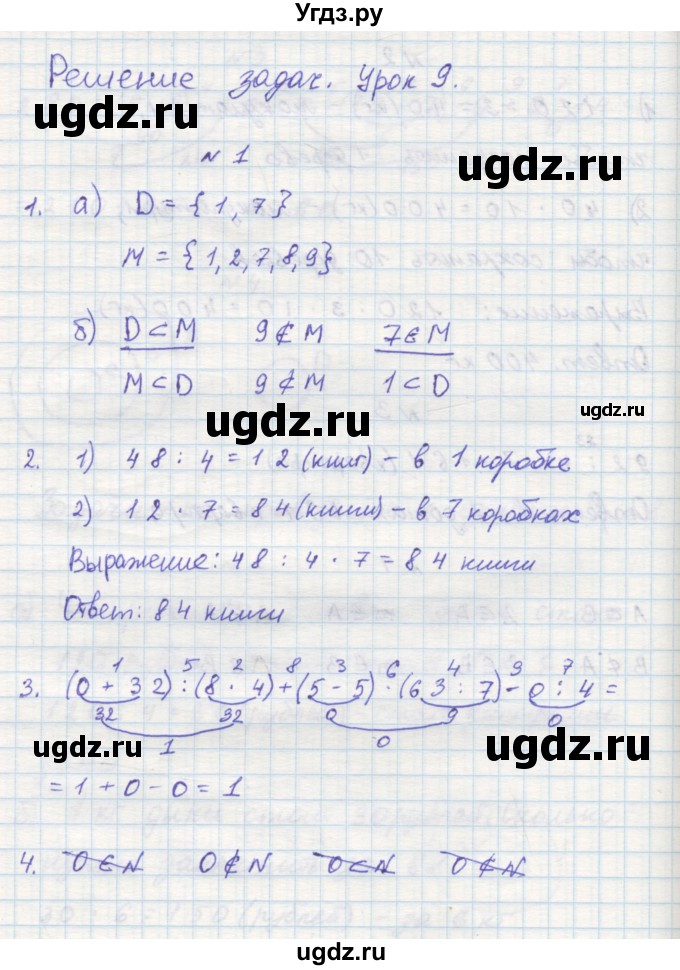 Угдз.ру
Решение задач. Урок 9.
ugdz.ru ugdz.ru
N 1
1. а) D = {1, 7}
M = {1, 2, 7, 8, 9}
ugdz.ru
б) D ⊂ M 9 ∉ M 7 ∈ M
M ⊂ D 9 ⊄ M 1 ⊂ D
ugdz.ru ugdz.ru
2. 1) 48 : 4 = 12 (книг) – в 1 коробке
2) 12 · 7 = 84 (книги) – в 7 коробках
ugdz.ru
Выражение: 48 : 4 · 7 = 84 книги
Ответ: 84 книги
ugdz.ru
1 5 2 8 3 6 4 9 7
3. (0 + 32) : (8 · 4) + (5 - 5) · (63 : 7) - 0 : 4 =
32 32 0 9 0
ugdz.ru 1 0 ugdz.ru
= 1 + 0 - 0 = 1
ugdz.ru
4. 0 ∈ N 0 ∉ N 0 ⊂ N 0 ⊄ N
ugdz.ru
ugdz.ru